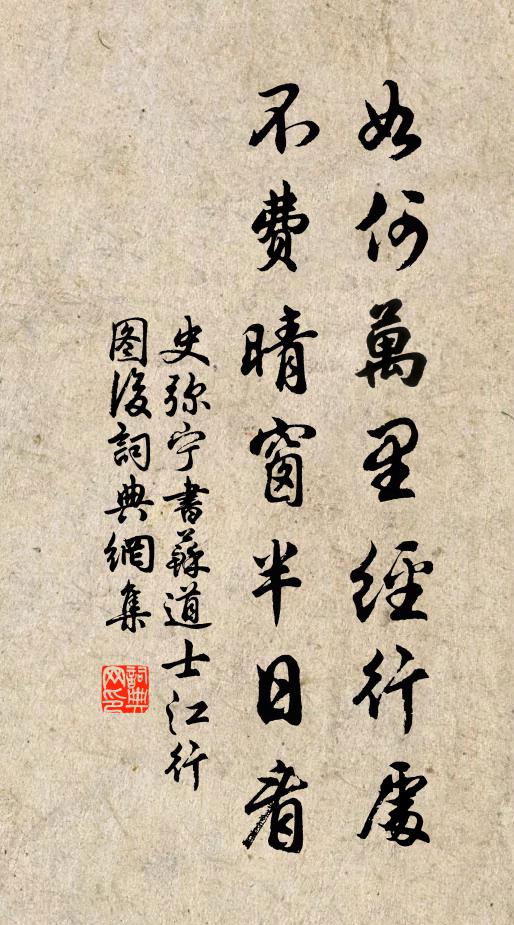 如何萬里經行處
不費晴窗半日看
史弥宁書蘇道士江行
图後詞典網集
詞典网印